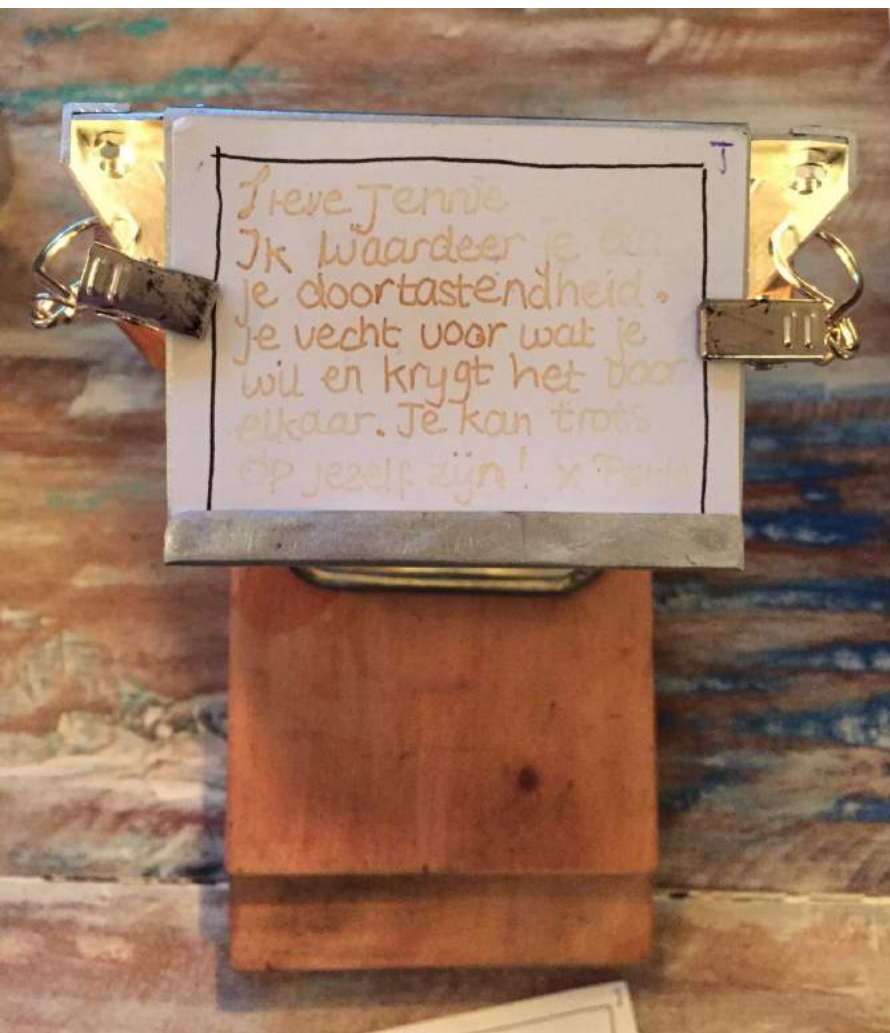 J
Lieve Jennie
Ik waardeer je
je doortastendheid.
je vecht voor wat je
wil en krygt het voor
elkaar. Je kan trots
op jezelf zijn! x